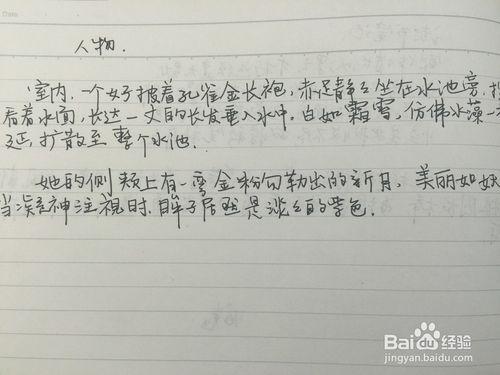 人物.
室内,一个女子披着孔雀金长袍,赤足静静坐在水池旁,
看着水面,长达一丈的长发垂入水中.白如霜雪,仿佛水藻一
延,扩散至整个水池.
她的侧颊上有一弯金粉勾勒出的新月,美丽如妖
当凝神注视时.眸子居然是淡淡的紫色.
Bai度经验
jingyan.baidu.com